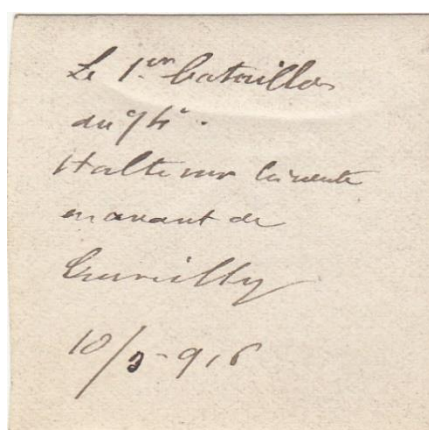 Le 1er bataillon
du 94e.
Halte sur la route
en avant de
10/9-916